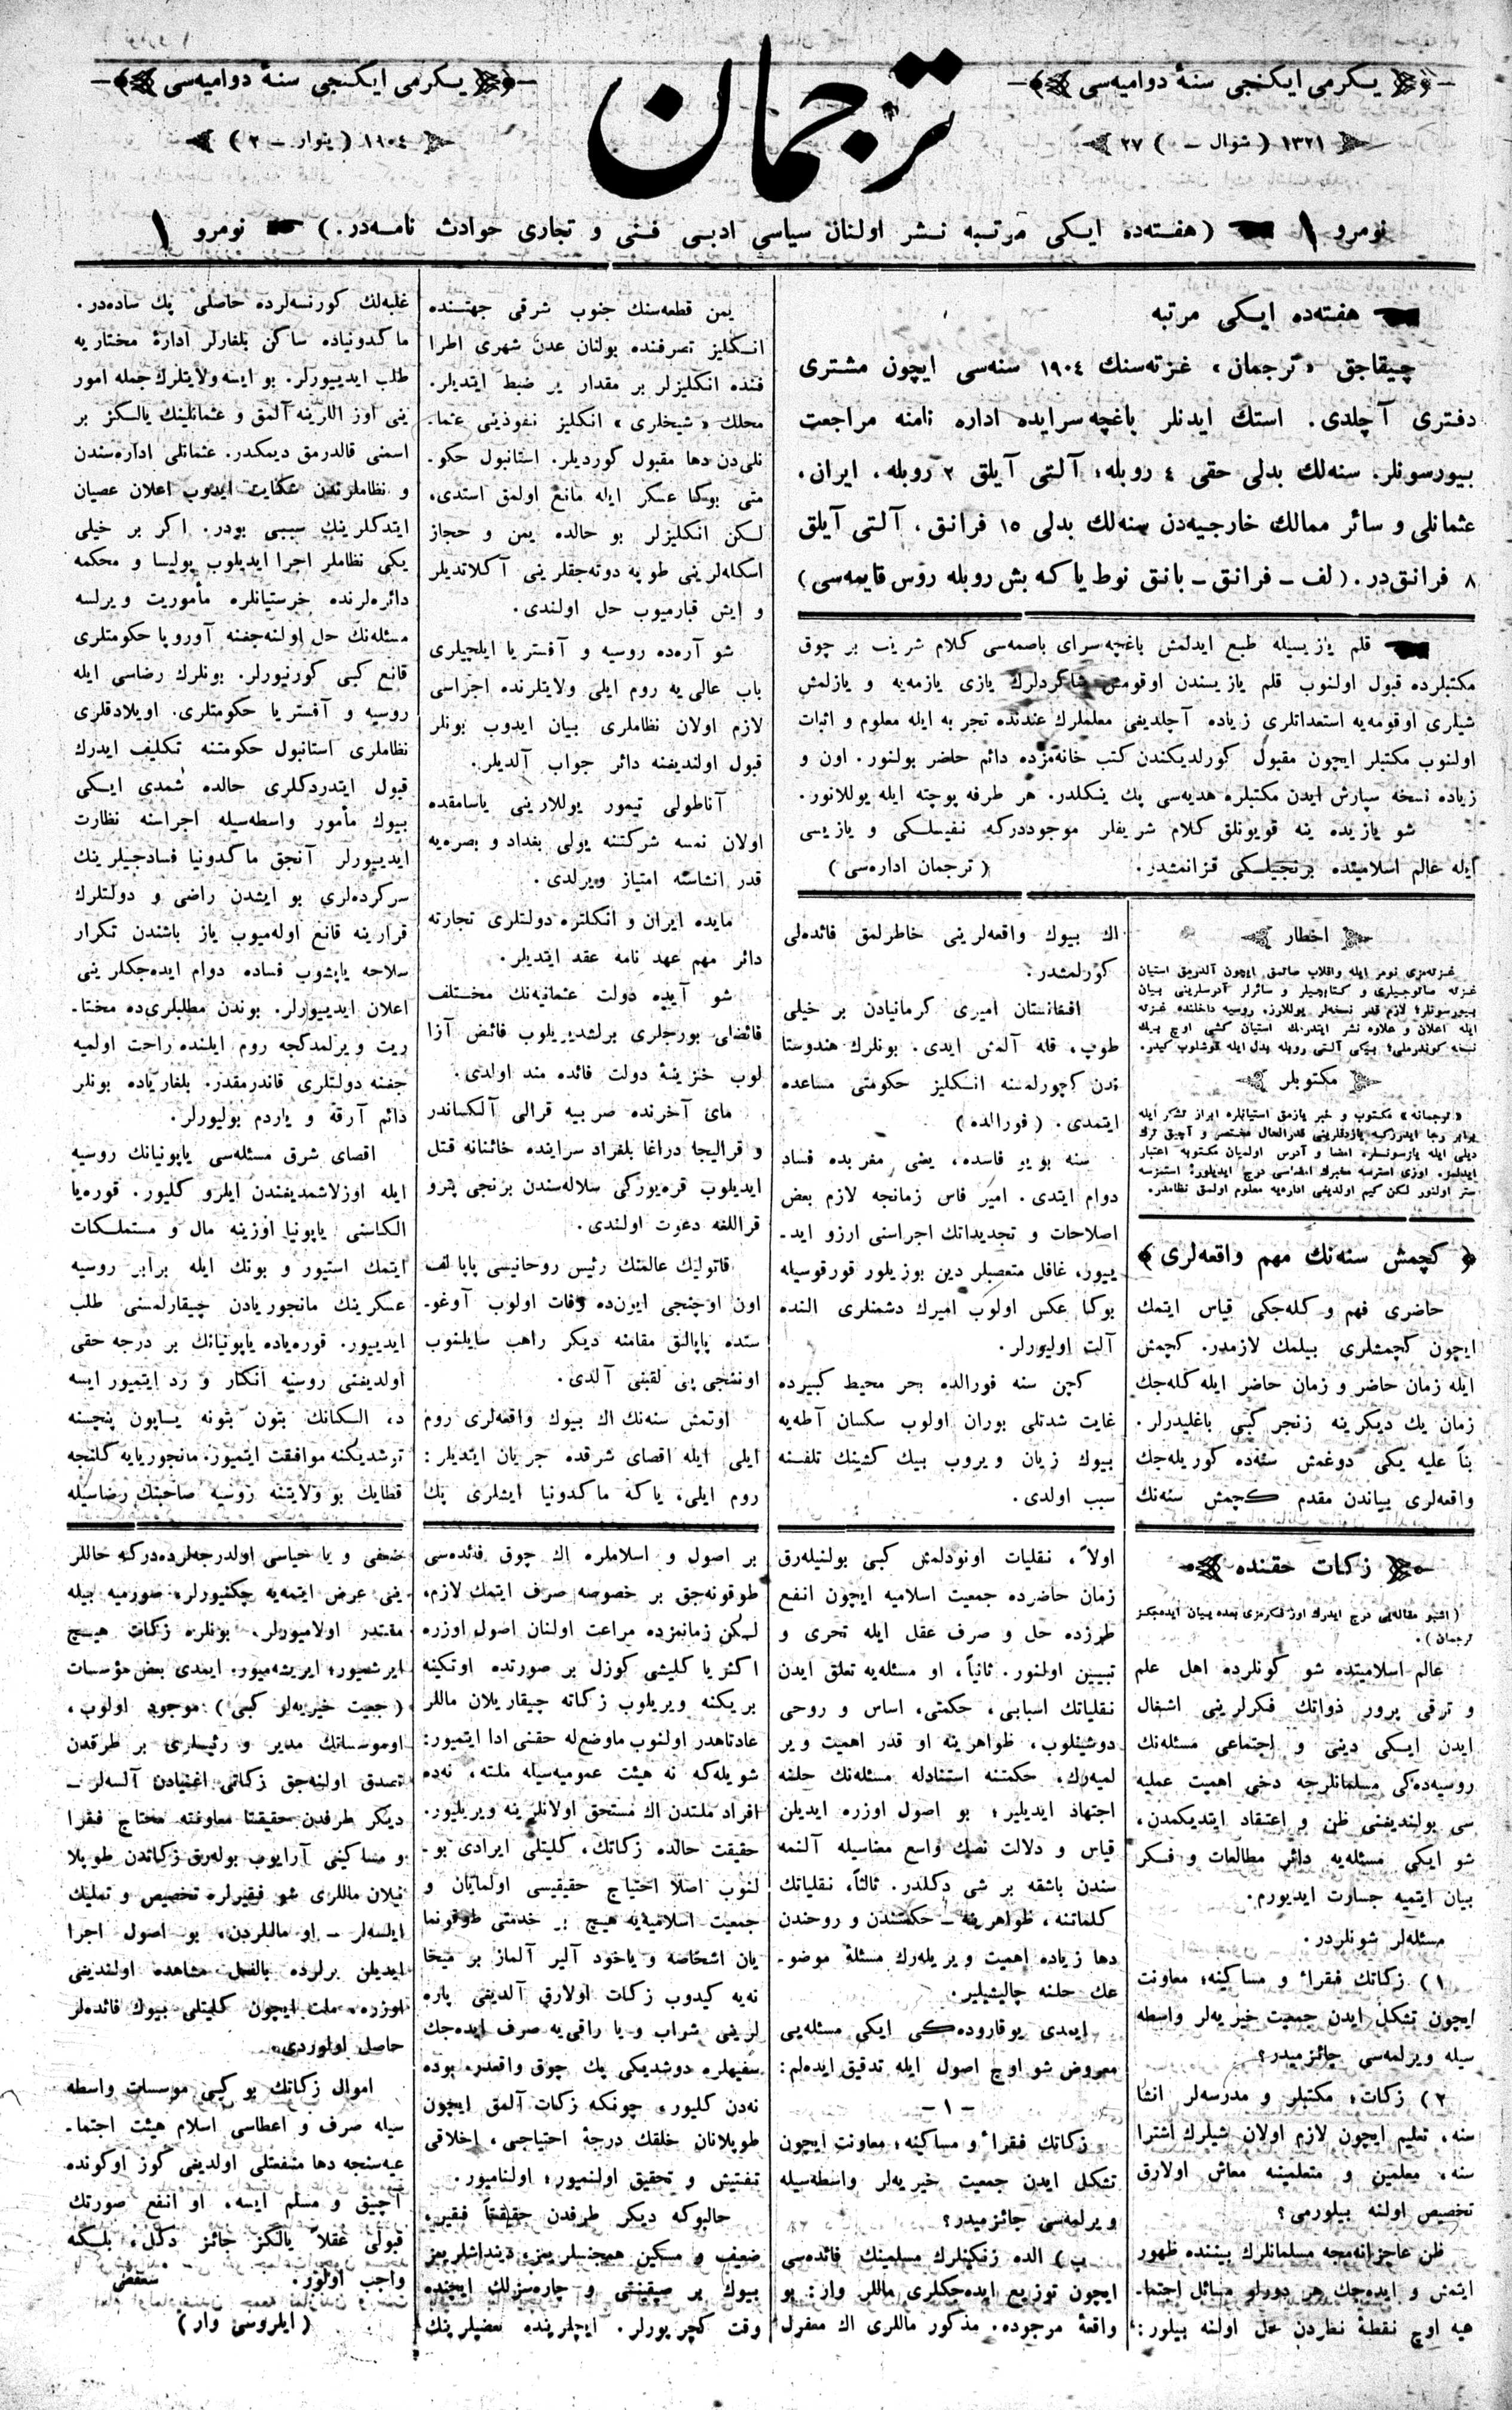 ترجمان
يكرمى ايكنجى سنۀ دواميه‌سى
١٣٢١ ( شوال – ) ٢٧
يكرمى ايكنجى سنۀ دواميه‌سى
١٩٠٤ ( ينوار – ٢ )
نومرو ١ ( هفته‌ده ايكى مرتبه نشر اولنان سياسى ادبى فنى و تجارى حوادث نامه‌در. ) نومرو ١
هفته‌ده ايكى مرتبه
چيقاجق «ترجمان» غزته‌سنك ١٩٠٤ سنه‌سى ايچون مشترى
دفترى آچلدى. استك ايدنلر باغچه‌سرايده اداره نامنه مراجعت
بيورسونلر. سنه‌لك بدلى حقى ٤ روبله؛ آلتى آيلق ٢ روبله. ايران،
عثمانلى و سائر ممالك خارجيه‌دن سنه‌لك بدلى ١٥ فرانق، آلتى آيلق
٨ فرانق‌در. ( لف – فرانق – بانق نوط ياكه بش روبله روس قايمه‌سى )
قلم يازيسيله طبع ايدلمش باغچه‌سراى باصمه‌سى كلام شريف بر چوق
مكتبلرده قبول اولنوب قلم يازيسندن اوقومش شاكردلرك يازى يازمه‌يه و يازلمش
شيلرى اوقومه‌يه استعدادلرى زياده آچلديغى معلملرك عندنده تجربه ايله معلوم و اثبات
اولنوب مكتبلر ايچون مقبول كورلديكندن كتب خانه‌مزده دائم حاضر بولنور. اون و
زياده نسخه سپارش ايدن مكتبلره هديه‌سى پك ينكلدر. هر طرفه پوچته ايله يوللانور.
شو يازيده ينه قويونلق كلام شريفلر موجوددركه نفيسلكى و يازيسى
ايله عالم اسلاميتده برنجيلكى قزانمشدر. ( ترجمان اداره‌سى )
اخطار
غزته‌مزى نومر ايله واقلاب صاتمق ايچون آلدريق استيان
غزته صاتوجيلرى و كتابجيلر و سائرلر آدرسلرينى بيان
بيورسونلر؛ لازم قدر نسخه‌لر يوللارز. روسيه داخلنده غزته
ايله اعلان و علاوه نشر ايتدرمك استيان كشى اوچ بيك
نسخه كوندرملى؛ بيكى آلتى روبله بدل ايله قوشلوب كيدر.
مكتوبلر
«ترجمانه» مكتوب و خبر يازمق استيانلره ابراز تشكر ايله
برابر رجا ايدرزكه يازدقلرينى قدرالحال مختصر و آچيق ترك
ديلى ايله يازسونلر. امضا و آدرس اولميان مكتوبه اعتبار
ايدلمز. اوزى استرسه مخبرك امضاسى درج ايديلور؛ استمزسه
ستر اولنور لكن كيم اولديغى اداره‌يه معلوم اولمق نظامدر.
كچمش سنه‌نك مهم واقعه‌لرى
حاضرى فهم و كله‌جكى قياس ايتمك
ايچون كچمشلرى بيلمك لازمدر. كچمش
ايله زمان حاضر و زمان حاضر ايله كله‌جك
زمان يك ديكرينه زنجر كبى باغليدرلر.
بناً عليه يكى دوغمش سنه‌ده كوريله‌جك
واقعه‌لرى بياندن مقدم كچمش سنه‌نك
اك بيوك واقعه‌لرينى خاطرلمق فائده‌لى
كورلمشدر.
افغانستان اميرى كرمانيادن بر خيلى
طوپ، قله آلمش ايدى. بونلرك هندوستا
ندن كچورلمسنه انكليز حكومتى مساعده
ايتمدى. ( فورالده )
سنه بويو فاسده، يعنى مغربده فساد
دوام ايتدى. امير فاس زمانجه لازم بعض
اصلاحات و تجديداتك اجراسنى ارزو ايد-
ييور، غافل متعصبلر دين بوزيلور قورقوسيله
بوكا عكس اولوب اميرك دشمنلرى النده
آلت اوليورلر.
كچن سنه فورالده بحر محيط كبيرده
غايت شدتلى بوران اولوب سكسان آطه‌يه
بيوك زيان ويروب بيك كشينك تلفنه
سبب اولدى.
يمن قطعه‌سنك جنوب شرقى جهتنده
انكليز تصرفنده بولنان عدن شهرى اطرا
فنده انكليزلر بر مقدار ير ضبط ايتديلر.
محلك «شيخلرى» انكليز نفوذينى عثما-
نلى‌دن دها مقبول كورديلر. استانبول حكو-
متى بوكا عسكر ايله مانع اولمق استدى،
لكن انكليزلر بو حالده يمن و حجاز
اسكله‌لرينى طوپه دوته‌جقلرينى آكلاتديلر
و ايش قبارميوب حل اولندى.
شو آره‌ده روسيه و آفستريا ايلچيلرى
باب عالى‌يه روم ايلى ولايتلرنده اجراسى
لازم اولان نظاملرى بيان ايدوب بونلر
قبول اولنديغنه دائر جواب آلديلر.
آناطولى تيمور يوللارينى ياسامقده
اولان نمسه شركتنه يولى بغداد و بصره‌يه
قدر انشاسنه امتياز ويرلدى.
مايده ايران و انكلتره دولتلرى تجارته
دائر مهم عهد نامه عقد ايتديلر.
شو آيده دولت عثمانيه‌نك مختلف
فائضلى بورجلرى برلشديريلوب فائض آزا
لوب خزينۀ دولت فائده مند اولدى.
ماى آخرنده صربيه قرالى آلكساندر
و قراليجا دراغا بلغراد سراينده خائنانه قتل
ايديلوب قره‌يوركى سلاله‌سندن برنجى پترو
قراللغه دعوت اولندى.
قاتوليك عالمنك رئيس روحانيسى پاپا لف
اون اوچنجى ايون‌ده وفات اولوب آوغو-
ستده پاپالق مقامنه ديكر راهب سايلنوب
اوننجى پى لقبنى آلدى.
اوتمش سنه‌نك اك بيوك واقعه‌لرى روم
ايلى ايله اقصاى شرقده جريان ايتديلر:
روم ايلى، ياكه ماكدونيا ايشلرى پك
غلبه‌لك كورنسه‌لرده حاصلى پك ساده‌در.
ماكدونياده ساكن بلغارلر ادارۀ مختاريه
طلب ايدييورلر. بو ايسه ولايتلرك جمله امور
ينى اوز اللرينه آلمق و عثمانلينك يالكز بر
اسمنى قالدرمق ديمكدر. عثمانلى اداره‌سندن
و نظاملرندن شكايت ايدوب اعلان عصيان
ايتدكلرينك سببى بودر. اكر بر خيلى
يكى نظاملر اجرا ايديلوب پوليسا و محكمه
دائره‌لرنده خرستيانلره مأموريت ويرلسه
مسئله‌نك حل اولنه‌جغنه آوروپا حكومتلرى
قانع كبى كورنيورلر. بونلرك رضاسى ايله
روسيه و آفستريا حكومتلرى، اويلادقلرى
نظاملرى استانبول حكومتنه تكليف ايدرك
قبول ايتدردكلرى حالده شمدى ايكى
بيوك مأمور واسطه‌سيله اجراسنه نظارت
ايدييورلر. آنجق ماكدونيا فسادجيلرينك
سركرده‌لرى بو ايشدن راضى و دولتلرك
قرارينه قانع اوله‌ميوب ياز باشندن تكرار
سلاحه ياپشوب فساده دوام ايده‌جكلرينى
اعلان ايدييورلر. بوندن مطلبلرى‌ده مختا-
ريت ويرلمدكجه روم ايلنده راحت اولميه
جغنه دولتلرى قاندرمقدر. بلغارياده بونلر
دائم آرقه و ياردم بوليورلر.
اقصاى شرق مسئله‌سى ياپونيانك روسيه
ايله اوزلاشمديغندن ايلرو كليور. قوره‌يا
الكاسنى ياپونيا اوزينه مال و مستملكات
ايتمك استيور و بونك ايله برابر روسيه
عسكرينك مانجوريادن چيقارلمسنى طلب
ايدييور. قوره‌ياده ياپونيانك بر درجه حقى
اولديغنى روسيه انكار و رد ايتميور ايسه
ده، الكانك بتون بتونه ياپون پنچسنه
توشديكنه موافقت ايتميور. مانجوريايه كلنجه
قطايك بو ولايتنه روسيه صاحبنك رضاسيله
زكات حقنده
( اشبو مقاله‌يى درج ايدرك اوز فكرمزى بعده بيان ايده‌جكز
ترجمان ).
عالم اسلاميتده شو كونلرده اهل علم
و ترقى پرور ذواتك فكرلرينى اشغال
ايدن ايكى دينى و اجتماعى مسئله‌نك
روسيه‌ده‌كى مسلمانلرجه دخى اهميت عمليه
سى بولنديغنى ظن و اعتقاد ايتديكمدن،
شو ايكى مسئله‌يه دائر مطالعات و فكر
بيان ايتميه جسارت ايديورم.
مسئله‌لر شونلردر.
١ ) زكاتك فقراء و مساكينه؛ معاونت
ايچون تشكل ايدن جمعيت خيريه‌لر واسطه
سيله ويرلمه‌سى جائزميدر؟
٢ ) زكات؛ مكتبلر و مدرسه‌لر انشا
سنه، تعليم ايچون لازم اولان شيلرك اشترا
سنه، معلمين و متعلمينه معاش اولارق
تخصيص اولنه بيلورمى؟
ظن عاجزانه‌مجه مسلمانلرك بيننده ظهور
ايتمش و ايده‌جك هر دورلو مسائل اجتما-
عيه اوچ نقطۀ نظردن حل اولنه بيلور:
اولاً، نقليات اونودلمش كبى بولنيله‌رق
زمان حاضرده جمعيت اسلاميه ايچون انفع
طرزده حل و صرف عقل ايله تحرى و
تبيين اولنور. ثانياً، او مسئله‌يه تعلق ايدن
نقلياتك اسبابى، حكمتى، اساس و روحى
دوشينلوب، ظواهرينه او قدر اهميت وير
لميه‌رك، حكمتنه استنادله مسئله‌نك حلنه
اجتهاد ايديلير؛ بو اصول اوزره ايديلن
قياس و دلالت نصك واسع معناسيله آلنمه
سندن باشقه بر شى دكلدر. ثالثاً، نقلياتك
كلماتنه، ظواهرينه – حكمتندن و روحندن
دها زياده اهميت ويريله‌رك مسئلۀ موضو-
عك حلنه چاليشيلير.
ايمدى يوقاروده‌كى ايكى مسئله‌يى
معروض شو اوچ اصول ايله تدقيق ايده‌لم:
– ١ –
زكاتك فقراء و مساكينه؛ معاونت ايچون
تشكل ايدن جمعيت خيريه‌لر واسطه‌سيله
ويرلمه‌سى جائزميدر؟
ب ) الده زنكينلرك مسلمينك فائده‌سى
ايچون توزيع ايده‌جكلرى ماللر وار: بو
واقعۀ موجوده. مذكور ماللرى اك معقول
بر اصول و اسلاملره اك چوق فائده‌سى
طوقونه‌جق بر خصوصه صرف ايتمك لازم،
لكن زمانمزده مراعت اولنان اصول اوزره
اكثريا كليشى كوزل بر صورتده اوتكينه
بريكنه ويريلوب زكاته چيقاريلان ماللر
عادتاهدر اولنوب ماوضع‌له حقنى ادا ايتميور:
شويله‌كه نه هيئت عموميه‌سيله ملته، نه‌ده
افراد ملتدن اك مستحق اولانلرينه ويريليور.
حقيقت حالده زكاتك، كليتلى ايرادى بو-
لنوب اصلا احتياج حقيقيسى اولمايان و
جمعيت اسلاميه‌يه هيچ بر خدمتى طوقونما
يان اشخاصه و ياخود آلير آلماز بر ميخا
نه‌يه كيدوب زكات اولارق آلديغى پاره
لرينى شراب و يا راقى‌يه صرف ايده‌جك
سفيهلره دوشديكى پك چوق واقعدر. بوده
نه‌دن كليور، چونكه زكات آلمق ايچون
طوپلانان خلقك درجۀ احتياجى، اخلاقى
تفتيش و تحقيق اولنميور؛ اولناميور.
حالبوكه ديكر طرفدن حقيقتاً فقير،
ضعيف و مسكين همجنسلريمز، دينداشلريمز
بيوك بر صيقنتى و چاره‌سزلك ايچنده
وقت كچريورلر. ايچلرينده بعضيلرينك
ضعفى و يا حياسى اولدرجه‌لرده‌دركه حاللر
ينى عرض ايتمه‌يه چكنيورلر، صورميه بيله
مقتدر اولاميورلر. بونلره زكات هيچ
ايرشميور؛ ايريشه‌ميور. ايمدى بعض مؤسسات
( جمعيت خيريه‌لر كبى ) موجود اولوب،
اومؤسساتك مدير و رئيسلرى بر طرفدن
تصدق اولنه‌جق زكاتى اغنيادن آلسه‌لر –
ديكر طرفدن حقيقتا معاونته محتاج فقرا
و مساكينى آرايوب بوله‌رق زكاتدن طوپلا
نيلان ماللرى شو فقيرلره تخصيص و تمليك
ايلسه‌لر – او ماللردن، بو اصول اجرا
ايديلن يرلرده بالفعل مشاهده اولنديغى
اوزره، ملت ايچون كليتلى بيوك فائده‌لر
حاصل اولوردى.
اموال زكاتك بو كبى موسسات واسطه
سيله صرف و اعطاسى اسلام هيئت اجتما-
عيه‌سنجه دها منفعتلى اولديغى كوز اوكونده
آچيق و مسلم ايسه، او انفع صورتك
قبولى عقلاً يالكز جائز دكل، بلكه
واجب اولور.
( ايلروسى وار )